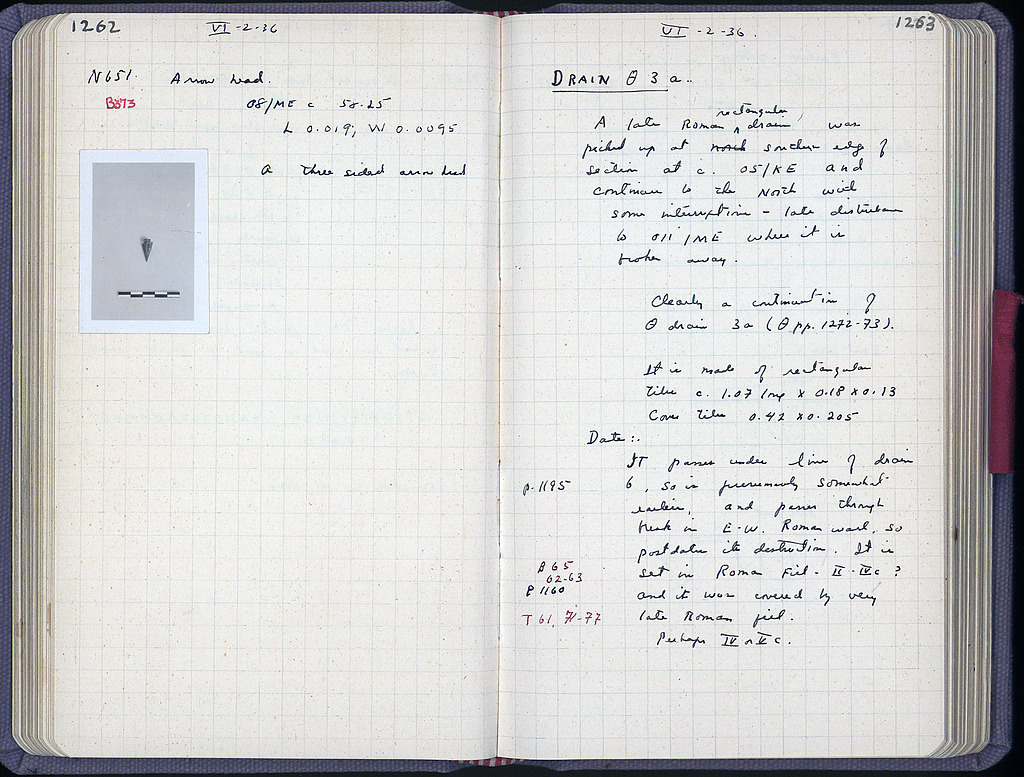 1262
VI -2-36
N651. Arrow head.
B873
O8/ME c 58.25
L 0.019; W 0.0095
a three sided arrow head
1263
VI -2-36.
DRAIN θ 3a..
rectangular
A late Roman ^ drain, was
picked up at north southern edge of
section at c. O5/KE and
continues to the North with
some interruption - late disturbance
to O11/ME where it is
broken away.
Clearly a continuation of
θ drain 3a (θ pp. 1272-73).
It is made of rectangular
tiles c. 1.07 long x 0.18 x 0.13
Cover tiles 0.42 x 0.205
Date:.
It passes under line of drain
p. 1195
6, so is presumably somewhat
earlier, and passes through
break in E-W. Roman wall, so
postdates its destruction. It is
B 65
62-63
set in Roman fill - II-IVc ?
P 1160
and it was covered by very
T 61, 71-77
late Roman fill.
Perhaps IV or V c.